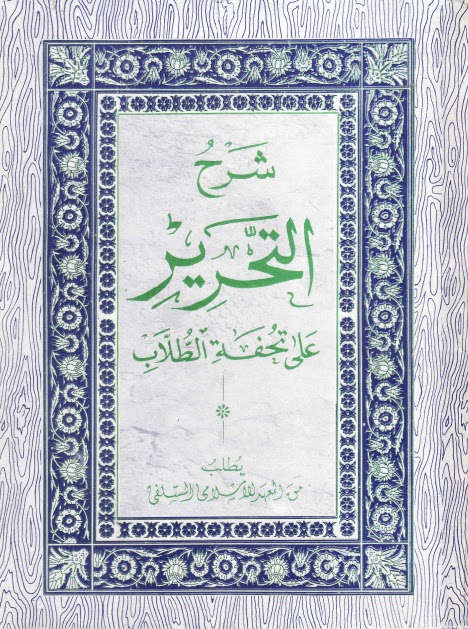 شَرْحُ
التَّحْرِيْرِ
عَلىٰ تُحْفَةِ الطُّلَّابِ
يُطلب
من المعهد الإسلامى السلفى